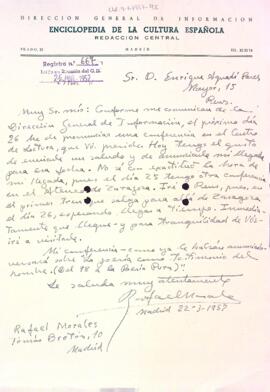 DIRECCION GENERAL DE INFORMACION
ENCICLOPEDIA DE LA CULTURA ESPAÑOLA
REDACCION CENTRAL
MADRID
Registro n.º 667
Sr. D. Enrique Aguadé Parés
Mayor, 15
Reus.
Muy Sr. mío: Conforme me comunican de la
Dirección General de Información, el próximo día
26 he de pronunciar una conferencia en el Centro
de Lectura, que Vd. preside. Hoy tengo el gusto
de enviarle un saludo y de anunciarle mi llegada
para esa fecha. No le especifico la hora de
mi llegada, pues el día 25 tengo otra conferencia
en el Ateneo de Zaragoza. Iré a Reus, pues, en
el primer tren que salga para allí de Zaragoza
el día 26, esperando llegar a tiempo. Inmedia-
tamente que llegue y para tranquilidad de Vds.
iré a visitarle.
Mi conferencia como ya le habrán anunciado
versará sobre La poesía como testimonio del
hombre. (Del 98 a la Poesía Pura)
Le saluda muy atentamente
Rafael Morales
Madrid 22-3-1957
Rafael Morales
Tomás Bretón, 10
Madrid